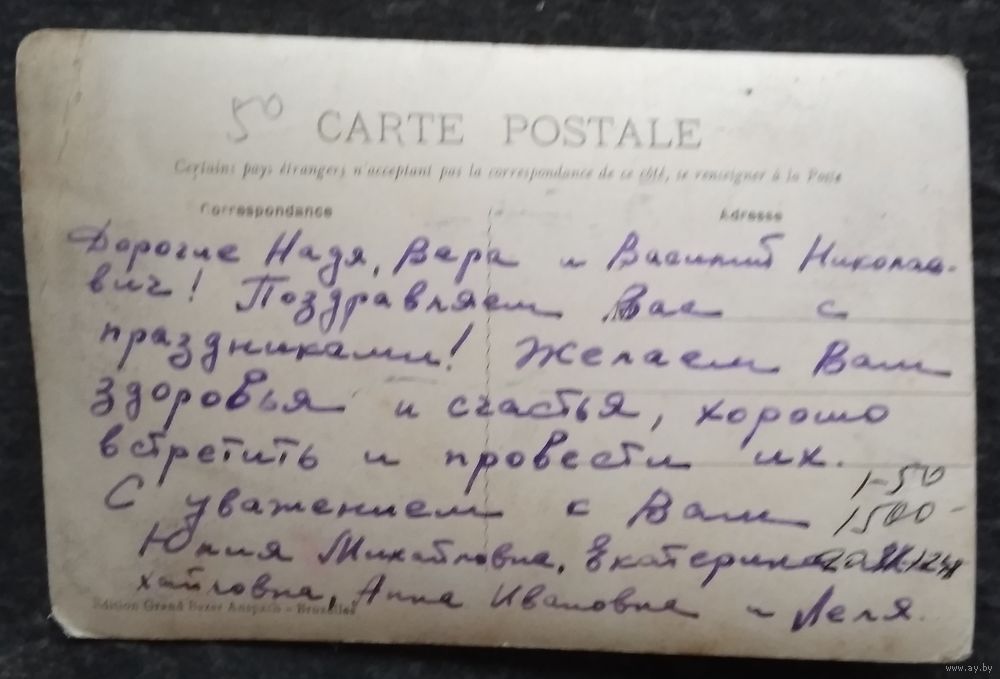 50
CARTE POSTALE
Certains pays étrangers n'acceptent pas la correspondance de ce côté, se renseigner à la Poste
Correspondance
Adresse
Дорогие Надя, Вера и Василий Николае-
вич! Поздравляем Вас с
праздниками! Желаем Вам
здоровья и счастья, хорошо
встретить и провести их.
1-50
С уважением к Вам
1500-
Юлия Михайловна, Екатерина
хайловна, Анна Ивановна и Леля.
Edition Grand Bazar Anspach - Bruxelles
www.ay.by